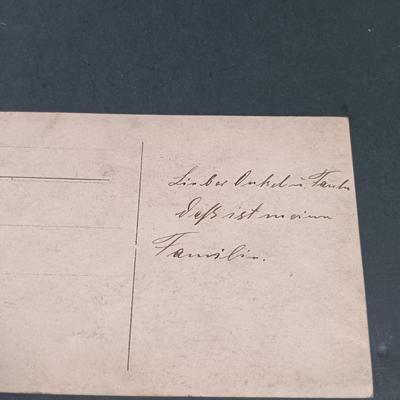 Lieber Onkel u. Tante
Deß ist meine
Familie.